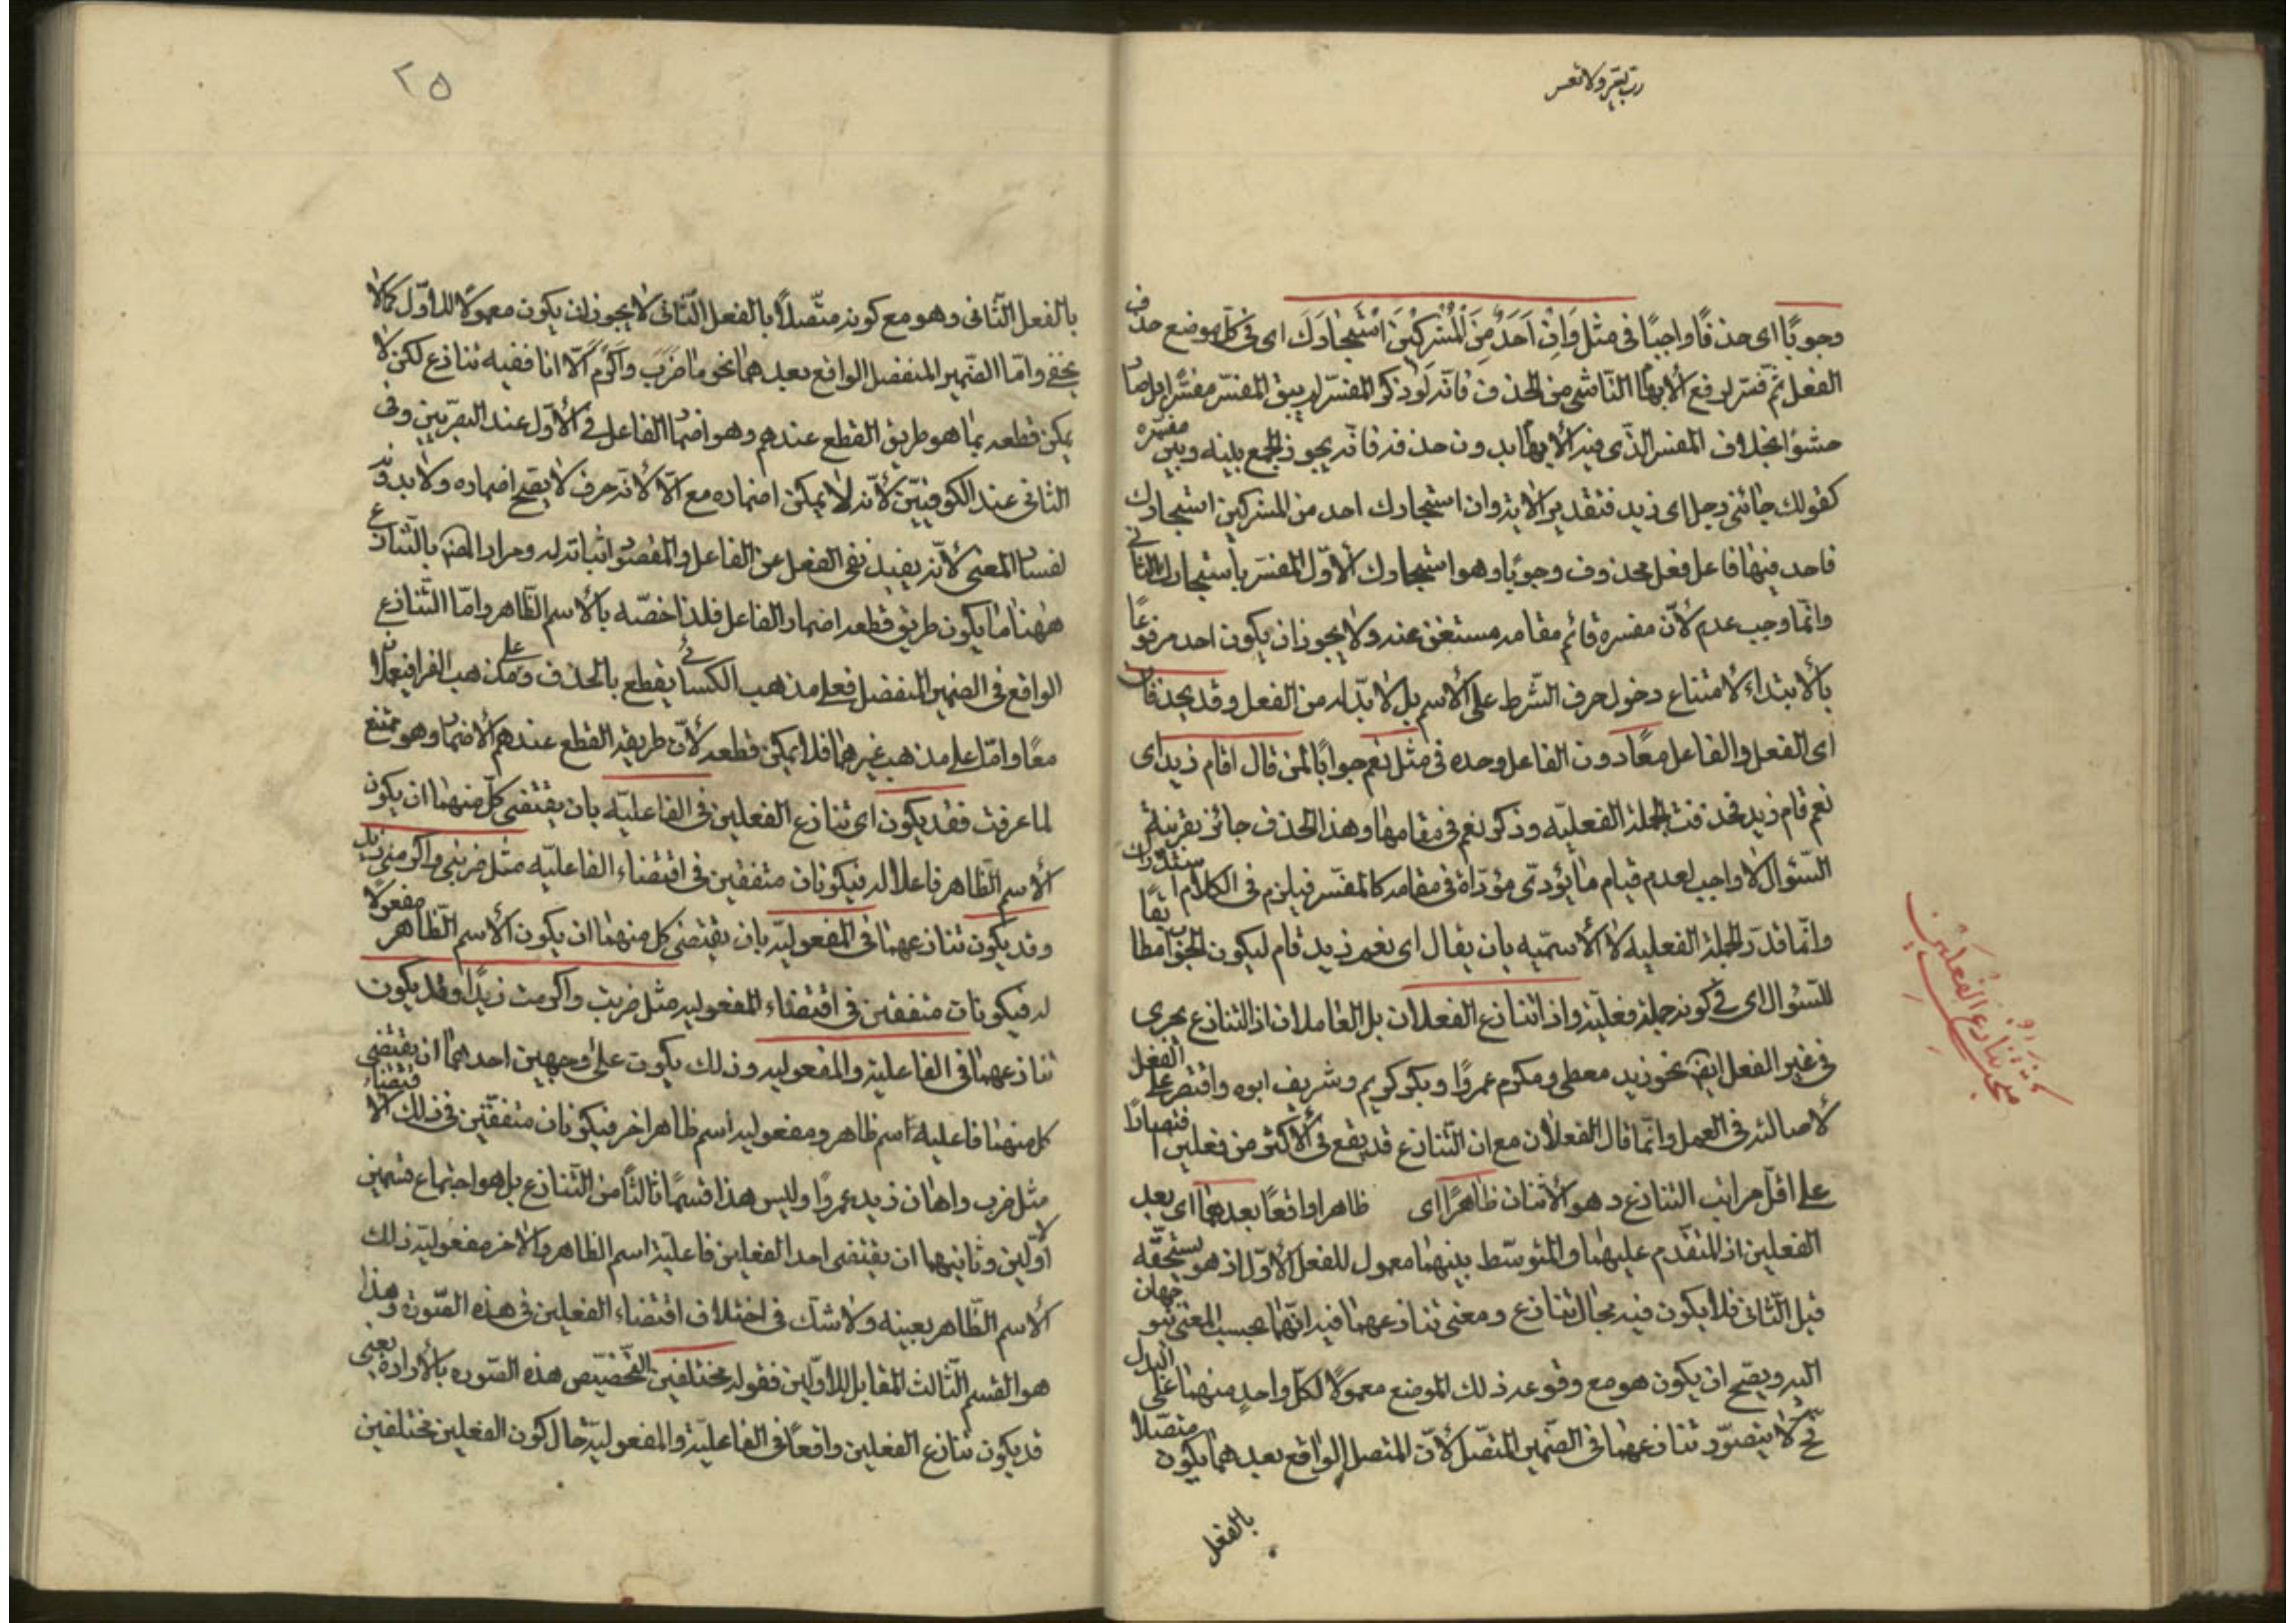 رب يسر ولا تعسر
وجوبًا اى حذفًا واجبًا فى مثل وَاِنْ اَحَدٌ مِنَ الْمُشْرِكٖينَ اسْتَجٰارَكَ اى فى كلّ موضع حذف
الفعل ثمّ فسّر لرفع الابهام الناشى من الحذف فانّه لو ذكر المفسَّر لم يبق المفسِّر مفسِّرا بل صار
حشوًا بخلاف المفسر الذى فيه الابهام بدون حذفه فانه يجوز الجمع بينه وبين مفسّره
كقولك جائنى رجل اى زيد فتقدير الاية وان استجارك احد من المشركين استجارك
فاحد فيها فاعل فعل محذوف وجوبًا وهو استجارك الاوّل المفسَر باستجارك الثانى
وانّما وجب عدم لانّ مفسره قائم مقامه مستغن عنه ولا يجوز ان يكون احد مرفوعًا
بالابتداء لامتناع دخول حرف الشّرط على الاسم بل لا بدّ له من الفعل وقد يحذفان
اى الفعل والفاعل معًا دون الفاعل وحده فى مثل نعم جوابًا لمن قال اقام زيد اى
نعم قام زيد فحذفت الجملة الفعليّه وذكر نعم فى مقامها وهذا الحذف جائز بقرينة
السّئوال لا واجب لعدم قيام ما يؤدّى مؤدّاه فى مقامه كالمفسّر فيلزم فى الكلام استدراك
وانّما قدّر الجملة الفعليه لا الاسميّه بان يقال اى نعم زيد قام ليكون الجواب مطابقًا
للسّئوال اى فى كونه جملة فعليّة واذا تنازع الفعلان بل العاملان اذ التنازع يجرى
فى غير الفعل ايضً نحو زيد معطى ومكرم عمروًا وبكر كريم وشريف ابوه واقتصر على الفعل
لاصالته فى العمل وانّما قال الفعلان مع ان التّنازع قد يقع فى الاكثر من فعلين اقتصارًا
على اقلّ مراتب التنازع وهو الاثنان ظاهرًا اى ظاهرا واقعًا بعدهما اى بعد
الفعلين اذ المتقدم عليهما والمتوسّط بينهما معمول للفعل الاوّل اذ هو يستحقّه
قبل الثّانى فلا يكون فيه مجال تنازع ومعنى تنازعهما فيه انّهما بحسب المعنى يتوجهان
اليه ويصّح ان يكون هو مع وقوعه ذلك الموضع معمولًا لكلّ واحدٍ منهما على البدل
فح لا يتصوّر تنازعهما فى الضّمير المتّصل لانّ المتصل الواقع بعدهما يكون متصّلا
بالفعل
مبحث تنازع الفعلين
٢٥
بالفعل الثّانى وهو مع كونه متّصلًا بالفعل الثّانى لا يجوز ان يكون معمولًا للاوّل كما لا
يخفى وامّا الضّمير المنفصل الواقع بعدهما نحو ما ضَرَبَ وَاَكْرَمَ اِلّا انا ففيه تنازع لكن لا
يمكن قطعه بما هو طريق القطع عندهم وهو اضمار الفاعل فى الاوّل عند البصريّين وفى
الثانى عند الكوفييّن لانّه لا يمكن اضماره مع الّا لانّه حرف لا يصّح اضماره ولا بدونه
لفساد المعنى لانّه يفيد نفى الفعل عن الفاعل والمقصود اثباته له ومراد المصّ بالتّنازع
ههنا ما يكون طريق قطعه اضمار الفاعل فلذا خصّه بالاسم الظّاهر وامّا التّنازع
الواقع فى الضمير المنفصل فعلى مذهب الكسائى يقطع بالحذف وعلى مذهب الفرا فيعملان
معًا وامّا على مذهب غيرهما فلا يمكن قطعه لانّ طريقه القطع عندهم الاضمار وهو ممتنع
لما عرفت فقد يكون اى تنازع الفعلين فى الفاعليّه بان يقتضى كلّ منهما ان يكون
الاسم الظّاهر فاعلا له فيكونان متفقين فى اقتضاء الفاعليّه مثل ضربنى واكرمنى زيد
وقد يكون تنازعهما فى المفعوليّه بان يقتضى كل منهما ان يكون الاسم الظّاهر مفعولًا
له فيكونان متفقين فى اقتضاء المفعوليه مثل ضربت واكرمت زيدًا وقد يكون
تنازعهما فى الفاعلية والمفعوليه وذلك يكون على وجهين احدهما ان يقتضى
كل منهما فاعليه اسم ظاهر ومفعوليه اسم ظاهر اخر فيكونان متفقين فى ذلك الاقتضاء
مثل ضرب واهان زيد عمروًا وليس هذا قسمًا ثالثًا من التّنازع بل هو اجتماع قسمين
الاوّلين وثانيهما ان يقتضى احد الفعلين فاعليّة اسم الظاهر والاخر مفعوليّة ذلك
الاسم الظّاهر بعينه ولا شكّ فى اختلاف اقتضاء الفعلين فى هذه الصّورة وهذا
هو القسم الثّالث المقابل للاوّلين فقوله مختلفين لتخصيّص هذه الصّوره بالارادة يعنى
قد يكون تنازع الفعلين واقعًا فى الفاعليّة والمفعوليّة حال كون الفعلين مختلفين